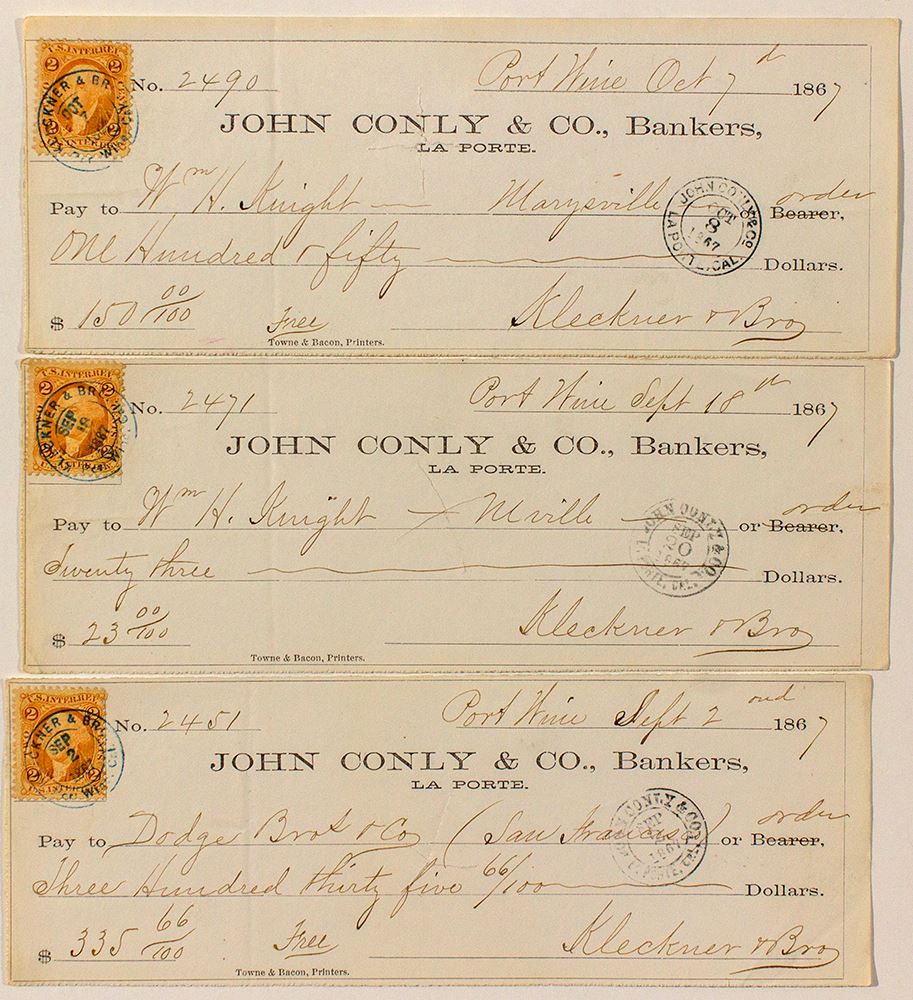 U.S. INTER. REV.
2 2
KLECKNER & BRO.
OCT
7
No. 2490 Port Wine Oct 7th 1867
JOHN CONLY & CO., Bankers,
LA PORTE.
Pay to Wm H. Knight — Marysville — or Bearer, order
JOHN CONLY & CO.
OCT
8
1867
LA PORTE, CAL.
One Hundred & fifty Dollars.
$ 150 00/100 Free Kleckner & Bro
Towne & Bacon, Printers.
U.S. INTER. REV.
2 2
KLECKNER & BRO.
SEP
18
1867
No. 2471 Port Wine Sept 18th 1867
JOHN CONLY & CO., Bankers,
LA PORTE.
Pay to Wm H. Knight — Mville — or Bearer, order
JOHN CONLY & CO.
SEP
20
1867
LA PORTE, CAL.
Twenty three Dollars.
$ 23 00/100 Kleckner & Bro
Towne & Bacon, Printers.
U.S. INTER. REV.
2 2
KLECKNER & BRO.
SEP
2
No. 2451 Port Wine Sept 2ond 1867
JOHN CONLY & CO., Bankers,
LA PORTE.
Pay to Dodge Bros & Co (San Francisco) or Bearer, order
CONLY & CO.
SEP
1867
LA PORTE, CAL.
Three Hundred thirty five 66/100 Dollars.
$ 335 66/100 Free Kleckner & Bro
Towne & Bacon, Printers.